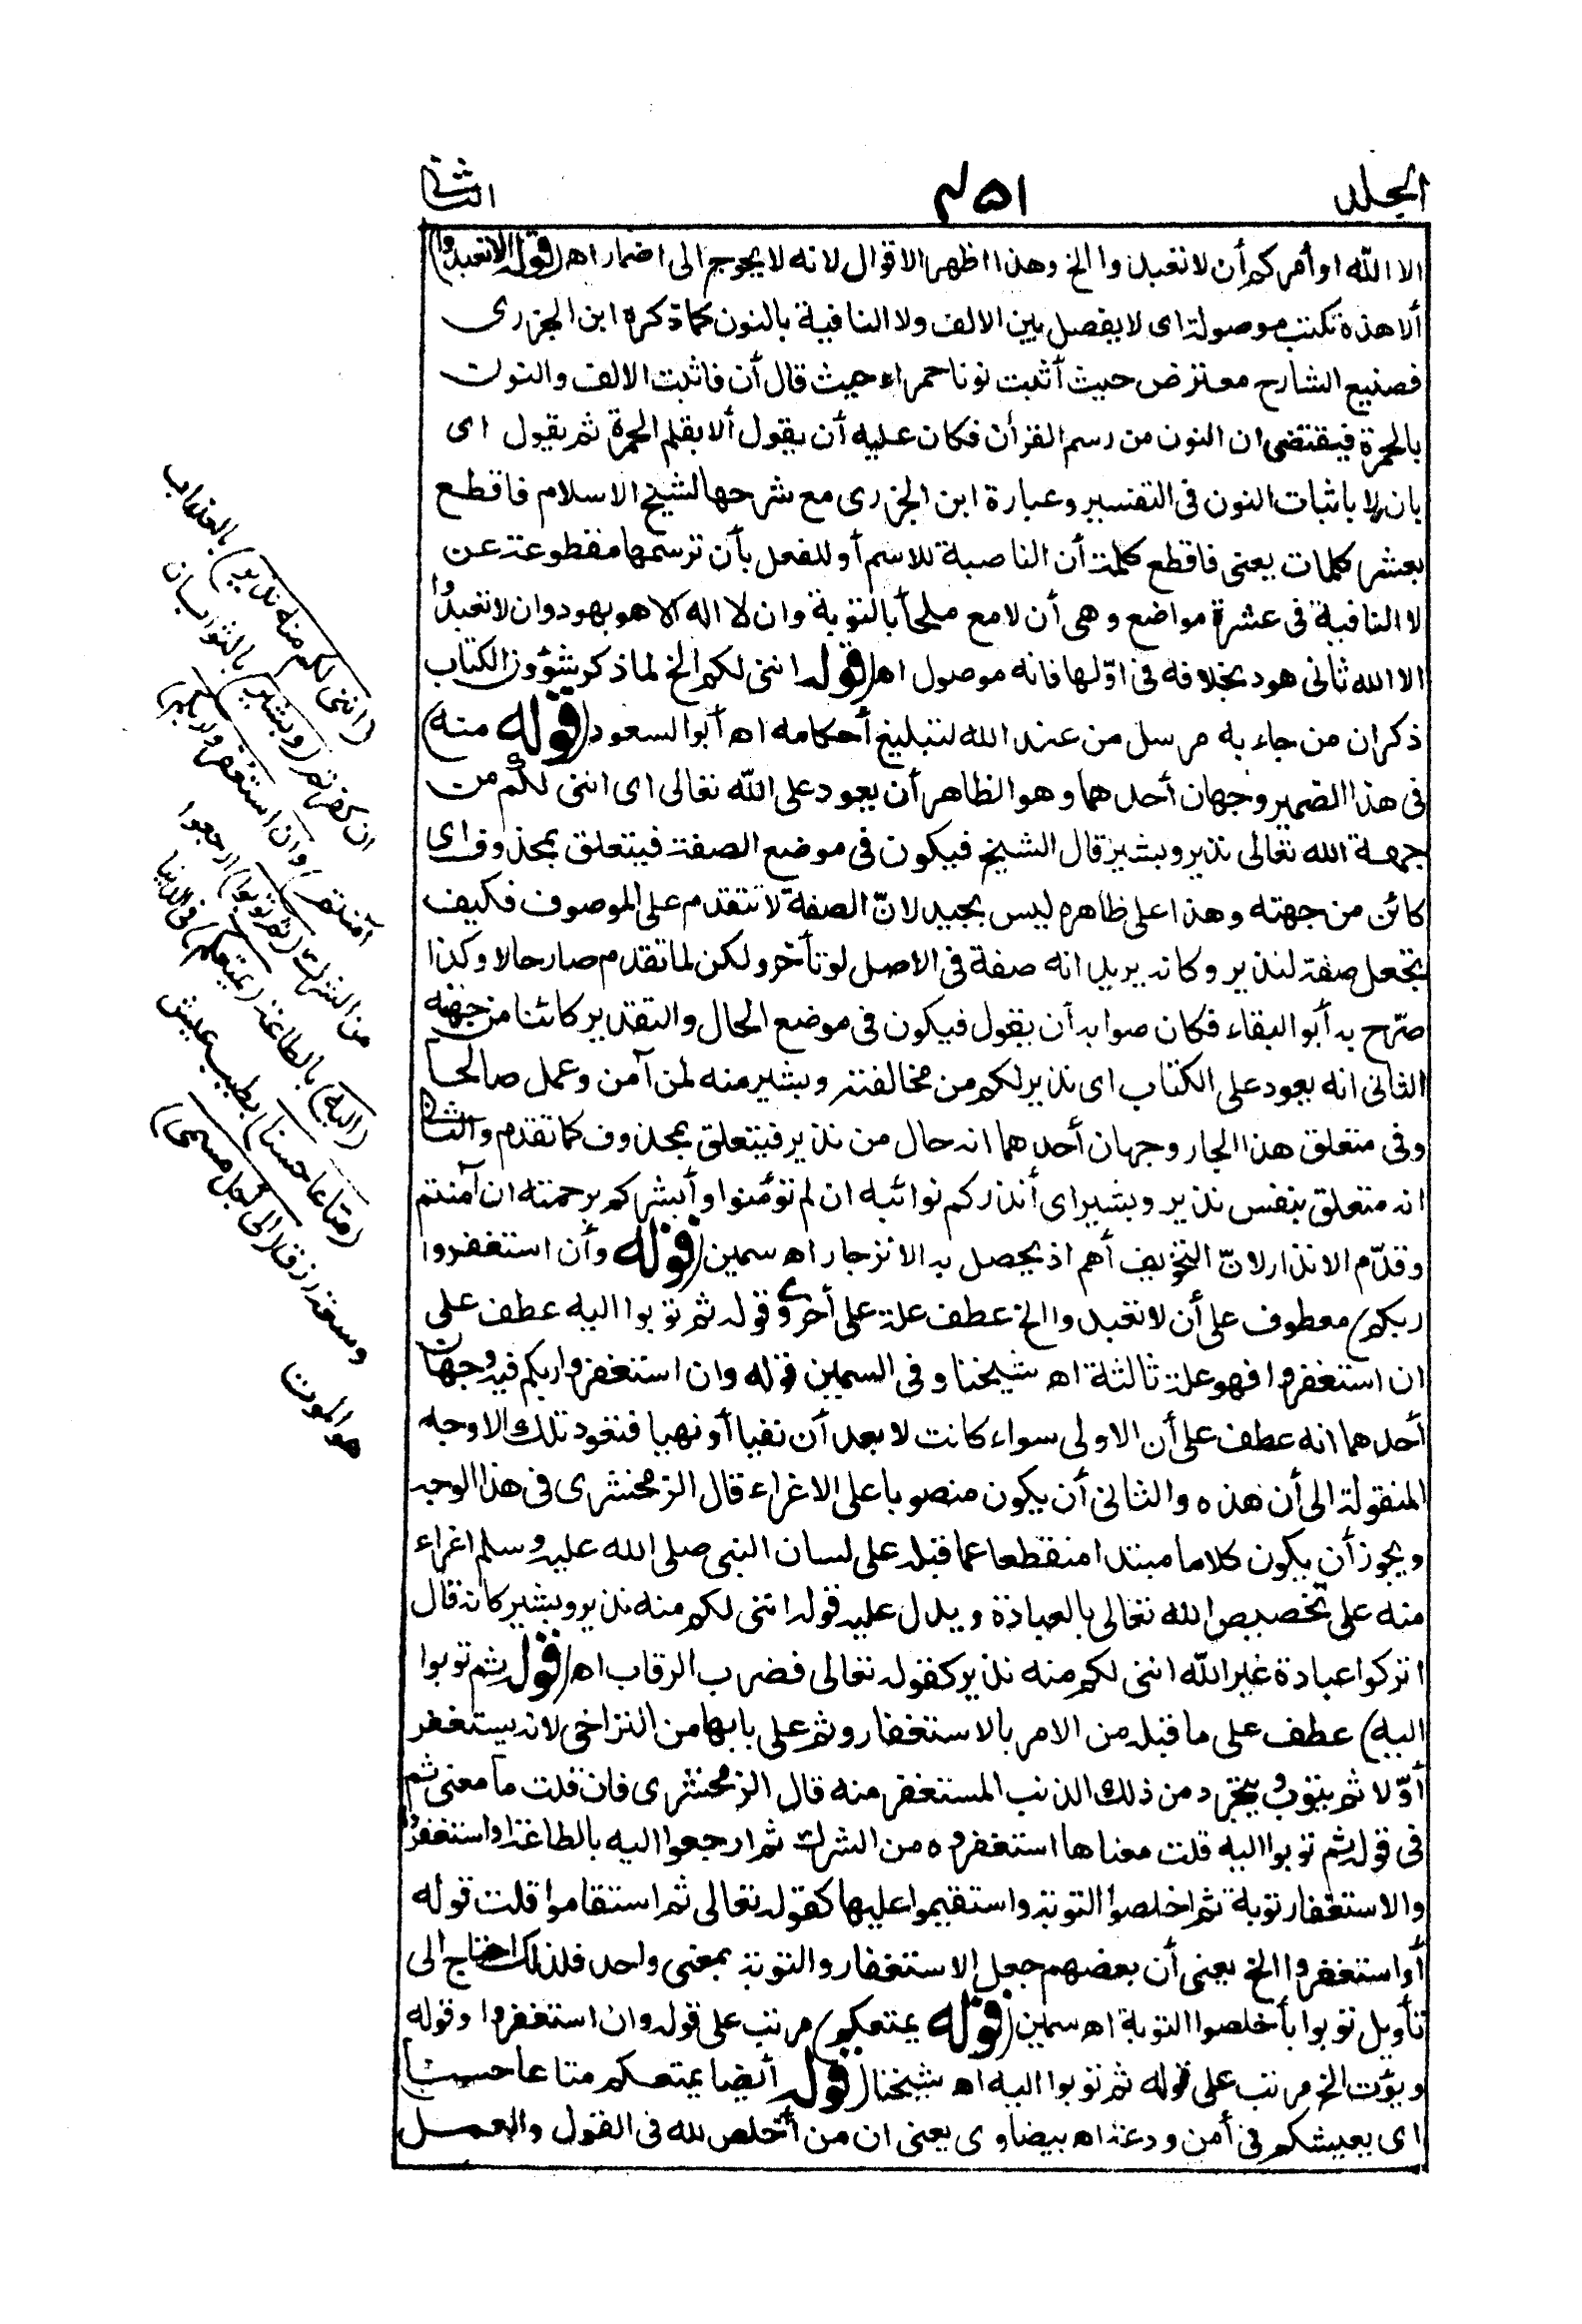 الجلد
٤٥١
الثانى
الا الله او أمركم أن لا تعبدوا الخ وهذا اظهر الاقوال لانه لا يحوج الى اضمار اه (قوله الا تعبدوا)
ألا هذه تكتب موصولة اى لا يفصل بين الالف ولا النافية بالنون كما ذكره ابن الجزرى
فصنيع الشارح معترض حيث أثبت نونا حمراء حيث قال أن فاثبت الالف والنون
بالحمرة فيقتضى ان النون من رسم القرأن فكان عليه أن يقول ألا بقلم الحمرة ثم يقول اى
بان لا باثبات النون فى التفسير وعبارة ابن الجزرى مع شرحها لشيخ الاسلام فاقطع
بعشر كلمات يعنى فاقطع كلمة أن الناصبة للاسم أو للفعل بأن ترسمها مقطوعة عن
لا النافية فى عشرة مواضع وهى أن لا مع ملجأ بالتوبة وان لا اله الا هو بهود وان لا تعبدوا
الا الله ثانى هود بخلافه فى اوّلها فانه موصول اه (قوله اننى لكم الخ لما ذكر شؤون الكتاب
ذكر ان من جاء به مرسل من عند الله لتبليغ أحكامه اه أبو السعود (قوله منه)
فى هذا الضمير وجهان أحدهما وهو الظاهر أن يعود على الله تعالى اى اننى لكم من
جهة الله تعالى نذير وبشير قال الشيخ فيكون فى موضع الصفة فيتعلق بمحذوف اى
كائن من جهته وهذا على ظاهره ليس بجيد لانّ الصفة لا تتقدم على الموصوف فكيف
تجعل صفة لنذير وكانه يريد انه صفة فى الاصل لو تأخر ولكن لما تقدم صار حالا وكذا
صرّح به أبو البقاء فكان صوابه أن يقول فيكون فى موضع الحال والتقدير كائنا من جهته
الثانى انه يعود على الكتاب اى نذير لكم من مخالفته وبشير منه لمن آمن وعمل صالحا
وفى متعلق هذا الجار وجهان أحدهما انه حال من نذير فيتعلق بمحذوف كما تقدم والثانى
انه متعلق بنفس نذير وبشير اى أنذركم نوائبه ان لم تؤمنوا وأبشركم برحمته ان آمنتم
وقدّم الانذار لانّ التخويف أهم اذ يحصل به الانزجار اه سمين (قوله وأن استغفروا
ربكم) معطوف على أن لا تعبدوا الخ عطف علة على أخرى وقوله ثم توبوا اليه عطف على
ان استغفروا فهو علة ثالثة اه شيخنا وفى السمين قوله وان استغفروا ربكم فيه وجهان
أحدهما انه عطف على أن الاولى سواء كانت لا بعد أن نفيا أو نهيا فتعود تلك الاوجه
المنقولة الى أن هذه والثانى أن يكون منصوبا على الاغراء قال الزمخشرى فى هذا الوجه
ويجوز أن يكون كلاما مبتدا منقطعا عما قبله على لسان النبى صلى الله عليه وسلم اغراء
منه على تخصيص الله تعالى بالعبادة ويدل عليه قوله اننى لكم منه نذير وبشير كانه قال
اتركوا عبادة غير الله اننى لكم منه نذير كقوله تعالى فضرب الرقاب اه (قوله ثم توبوا
اليه) عطف على ما قبله من الامر بالاستغفار وثم على بابها من التراخى لانه يستغفر
أوّلا ثم يتوب ويتجرد من ذلك الذنب المستغفر منه قال الزمخشرى فان قلت ما معنى ثم
فى قوله ثم توبوا اليه قلت معناها استغفروه من الشرك ثم ارجعوا اليه بالطاعة او استغفروا
والاستغفار توبة ثم اخلصوا التوبة واستقيموا عليها كقوله تعالى ثم استقاموا قلت قوله
أو استغفروا الخ يعنى أن بعضهم جعل الاستغفار والتوبة بمعنى واحد فلذلك احتاج الى
تأويل توبوا بأخلصوا التوبة اه سمين (قوله يمتعكم) مرتب على قوله وان استغفروا وقوله
ويؤت الخ مرتب على قوله ثم توبوا اليه اه شيخنا (قوله أيضا يمتعكم متاعا حسنا)
اى يعيشكم فى أمن ودعة اه بيضاوى يعنى ان من أخلص لله فى القول والعمل
(اننى لكم منه نذير) بالعذاب
ان كفرتم (وبشير) بالثواب ان
آمنتم (وان استغفروا ربكم)
من الشرك (ثم توبوا) ارجعوا
(اليه) بالطاعة (يمتعكم) فى الدنيا
(متاعا حسنا) بطيب عيش
وسعة رزق (الى أجل مسمى)
هو الموت